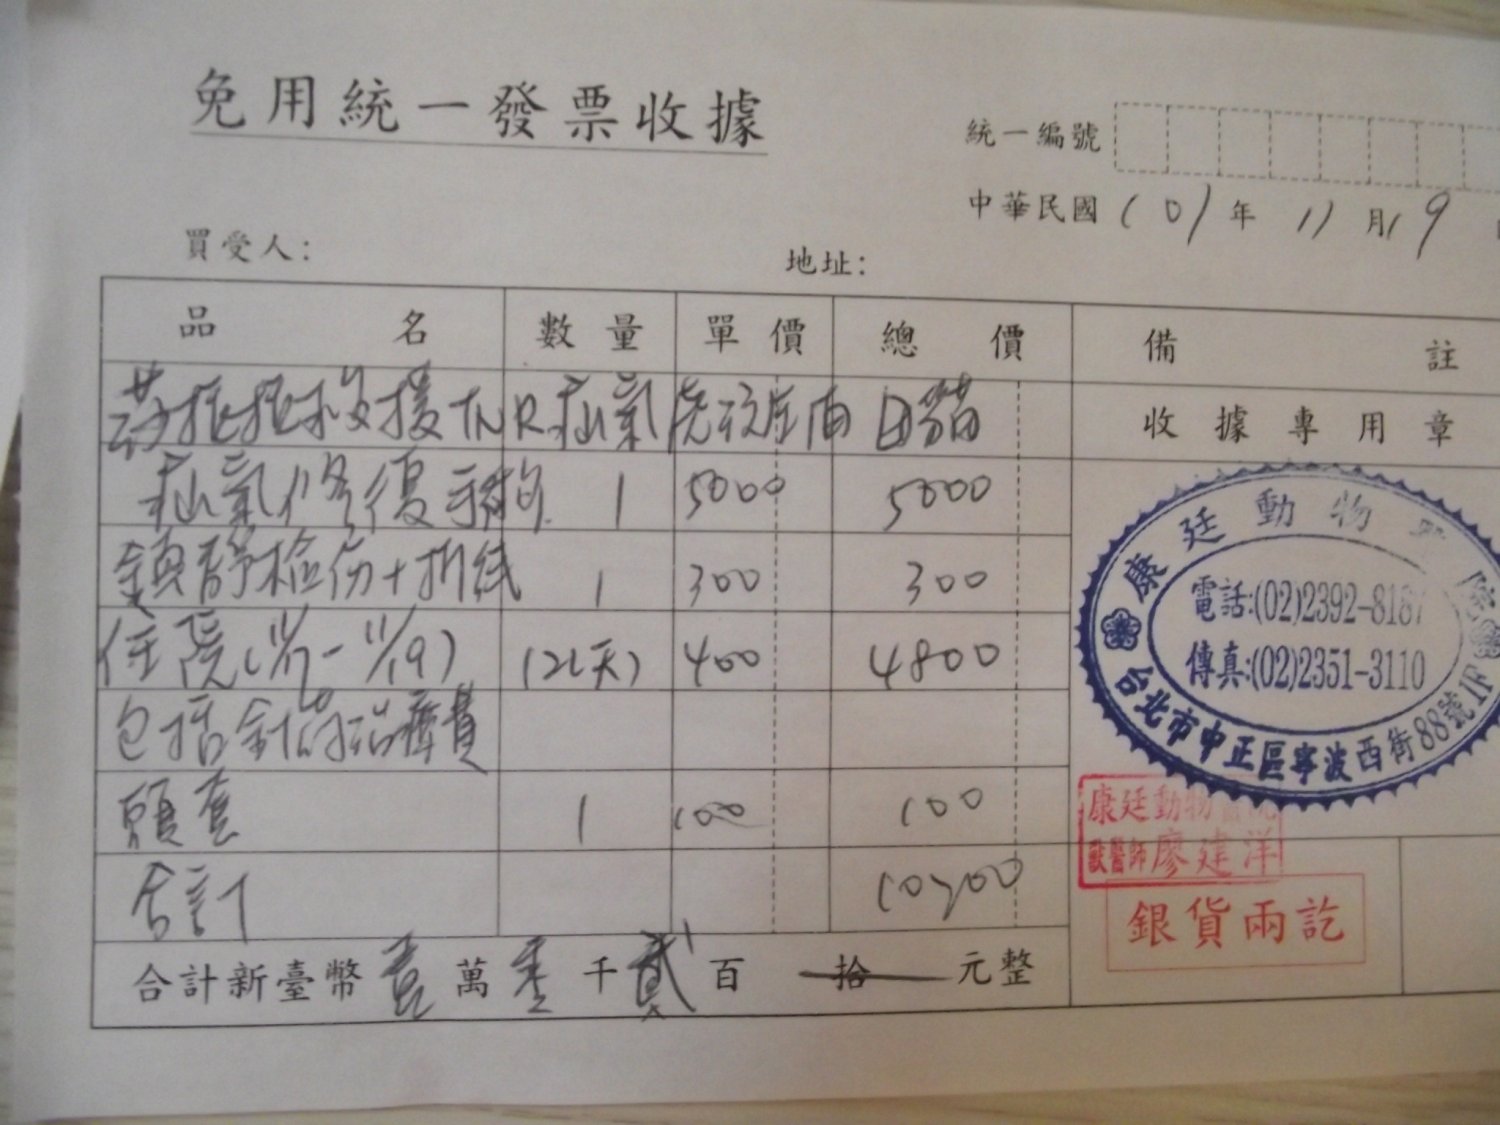 免用統一發票收據
統一編號
中華民國 101 年 11 月 19
買受人： 地址：
品名 數量 單價 總價 備註
救援TNR疝氣 白貓
收據專用章
疝氣修復手術 1 5000 5000
鎮靜檢傷+拆線 1 300 300
住院(11/7-11/19) 12(天) 400 4800
包括針劑治療費
頭套 1 100 100
合計 10200
合計新臺幣壹萬零千貳百拾元整
康廷動物
電話:(02)2392-818
傳真:(02)2351-3110
台北市中正區寧波西街88號1F
康廷動物醫院
獸醫師廖建洋
銀貨兩訖